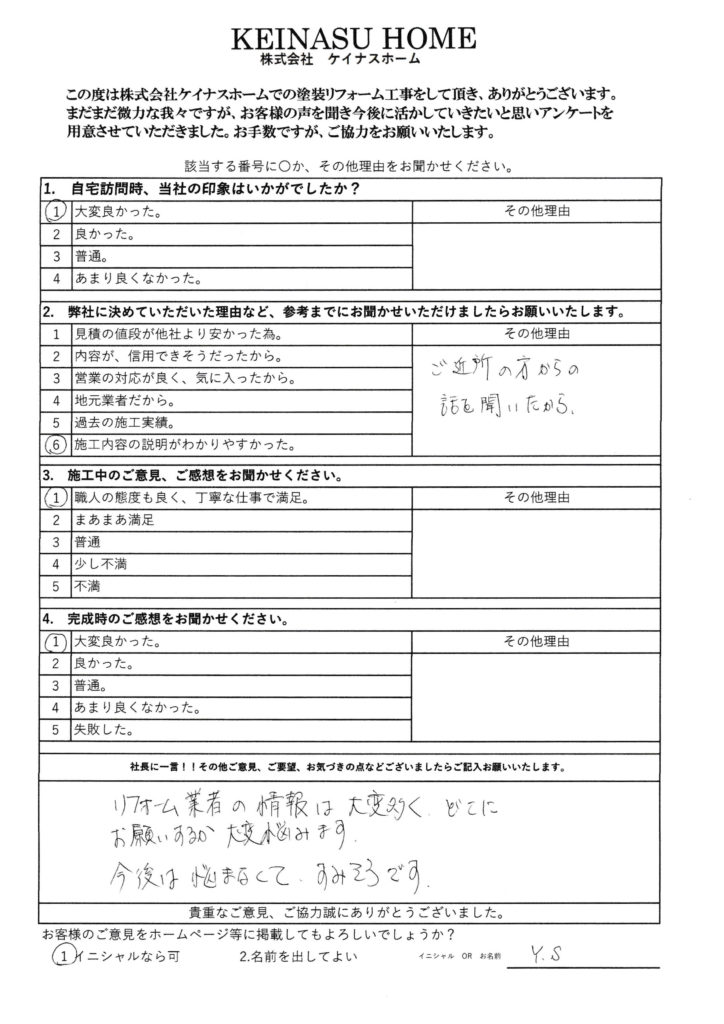 KEINASU HOME
株式会社　ケイナスホーム
この度は株式会社ケイナスホームでの塗装リフォーム工事をして頂き、ありがとうございます。
まだまだ微力な我々ですが、お客様の声を聞き今後に活かしていきたいと思いアンケートを
用意させていただきました。お手数ですが、ご協力をお願いいたします。
該当する番号に〇か、その他理由をお聞かせください。
1.　自宅訪問時、当社の印象はいかがでしたか？
1 大変良かった。 その他理由
2 良かった。
3 普通。
4 あまり良くなかった。
2.　弊社に決めていただいた理由など、参考までにお聞かせいただけましたらお願いいたします。
1 見積の値段が他社より安かった為。 その他理由
2 内容が、信用できそうだったから。
3 営業の対応が良く、気に入ったから。
4 地元業者だから。
5 過去の施工実績。
6 施工内容の説明がわかりやすかった。
ご近所の方からの
話を聞いたから。
3.　施工中のご意見、ご感想をお聞かせください。
1 職人の態度も良く、丁寧な仕事で満足。 その他理由
2 まあまあ満足
3 普通
4 少し不満
5 不満
4.　完成時のご感想をお聞かせください。
1 大変良かった。 その他理由
2 良かった。
3 普通。
4 あまり良くなかった。
5 失敗した。
社長に一言！！その他ご意見、ご要望、お気づきの点などございましたらご記入お願いいたします。
リフォーム業者の情報は大変多く、どこに
お願いするか大変悩みます。
今後は悩まなくて、すみそうです。
貴重なご意見、ご協力誠にありがとうございました。
お客様のご意見をホームページ等に掲載してもよろしいでしょうか？
1 イニシャルなら可 2.名前を出してよい イニシャル　OR　お名前 Y.S